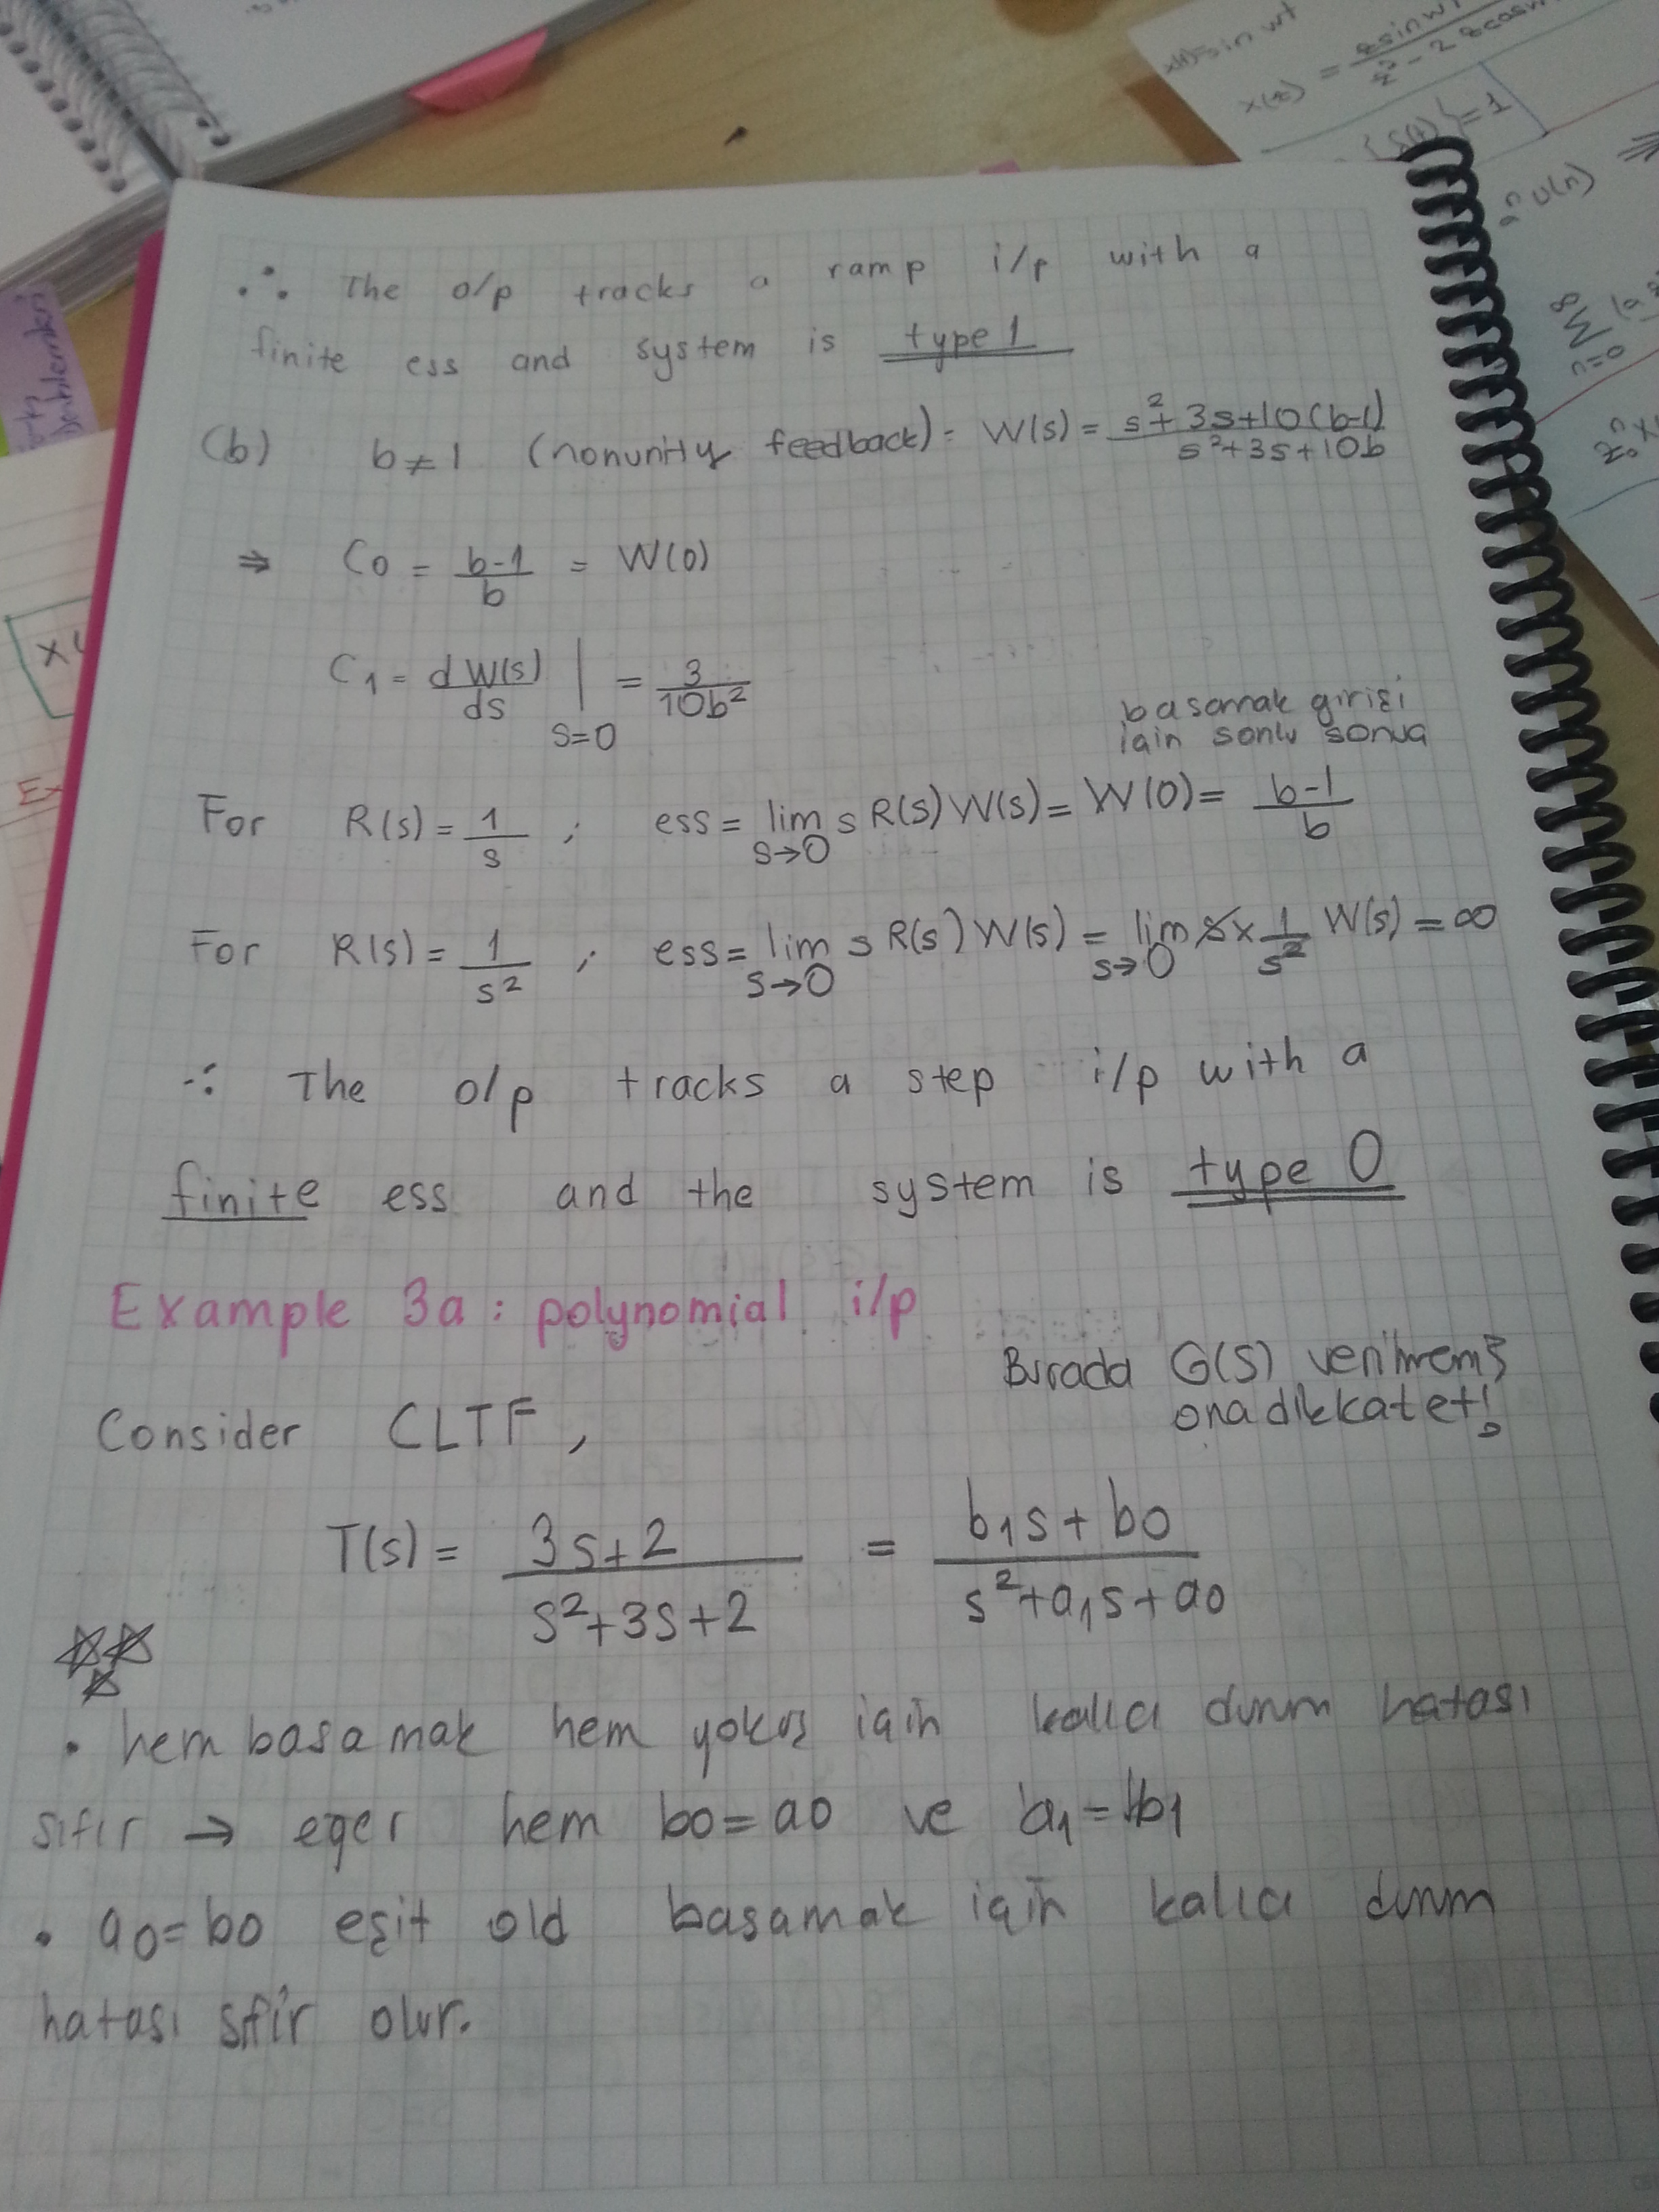 ∴ The o/p tracks a ramp i/p with a
finite ess and system is type 1
(b) b≠1 (nonunity feedback) = W(s) = (s²+3s+10(b-1))/(s²+3s+10b)
⇒ C0 = (b-1)/b = W(0)
C1 = dW(s)/ds | s=0 = 3/10b²
basamak girişi
için sonlu sonuç
For R(s) = 1/s ; ess = lim s→0 s R(s) W(s) = W(0) = (b-1)/b
For R(s) = 1/s² ; ess = lim s→0 s R(s) W(s) = lim s→0 s x 1/s² W(s) = ∞
∴ The o/p tracks a step i/p with a
finite ess and the system is type 0
Example 3a : polynomial i/p
Burada G(S) verilmemiş
ona dikkat et!
Consider CLTF,
T(s) = (3s+2)/(s²+3s+2) = (b1s + b0)/(s²+a1s+a0)
• hem basamak hem yokuş için kalıcı durum hatası
sıfır → eğer hem b0=a0 ve a1=b1
• a0=b0 eşit old basamak için kalıcı durum
hatası sıfır olur.
x(t)=sin wt
{δ(t)}=1
u(n)
n=0
Ex